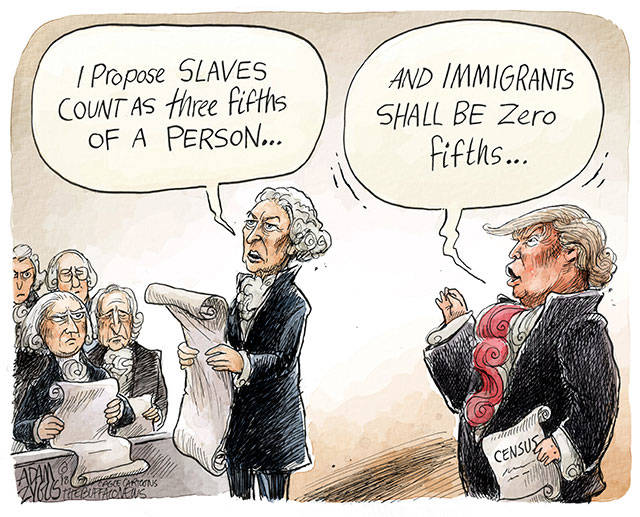 I Propose SLAVES
COUNT AS three fifths
OF A PERSON...
AND IMMIGRANTS
SHALL BE Zero
fifths...
CENSUS
ADAM
ZYGLIS
©'18
CAGLE CARTOONS
THE BUFFALO NEWS